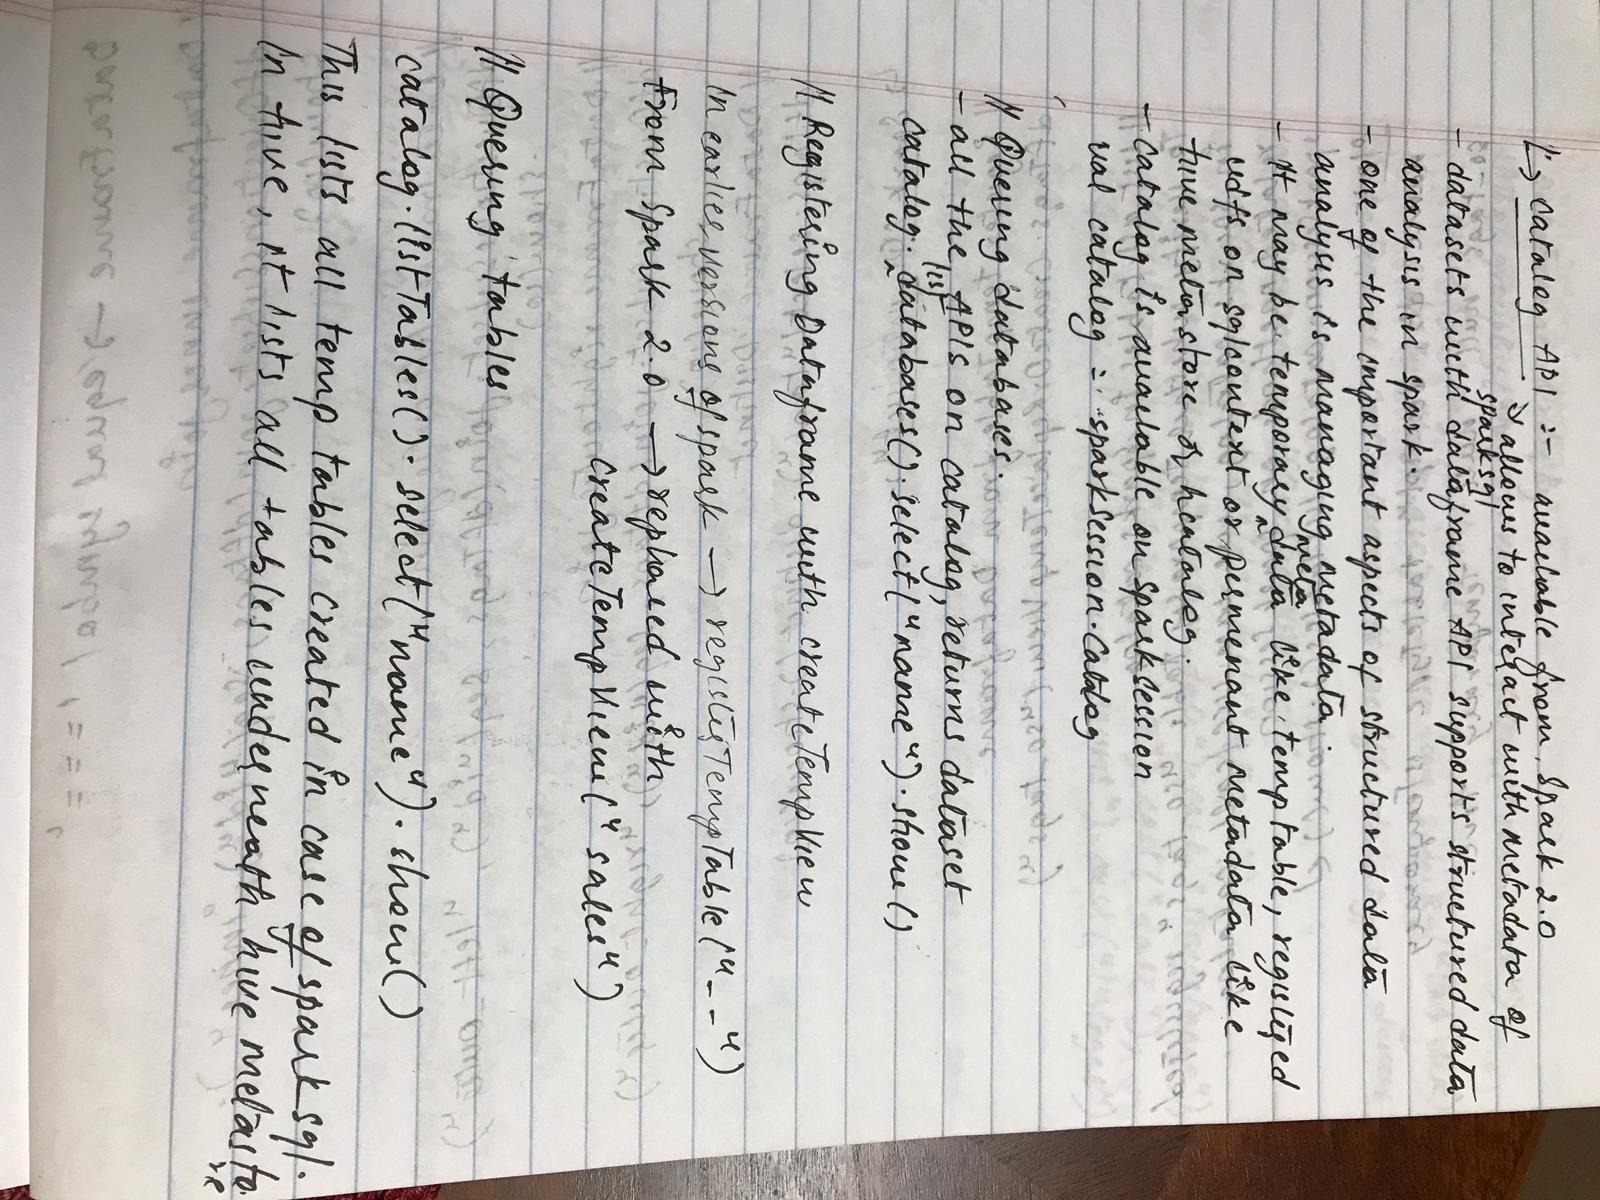 ↳ catalog API :- available from Spark 2.0
⇒ allows to interact with metadata of
sparksql
- datasets with dataframe API supports structured data
analysis in spark.
- one of the important aspects of structured data
analysis is managing metadata
- It may be temporary meta data like temp table, registered
udfs on sqlcontext or permenant metadata like
hive meta store or hcatalog.
- catalog is available on spark session
val catalog = sparksession.catalog
// Quering databases.
- all the APIs on catalog, returns dataset
catalog.listdatabases().select("name").show()
// Registering Dataframe with createTempView
In earlier versions of spark → registerTempTable("--")
from spark 2.0 → replaced with
createTempView("sales")
// Quering tables
catalog.listTables().select("name").show()
This lists all temp tables created in case of spark sql.
In hive, it lists all tables underneath hive metasto
re